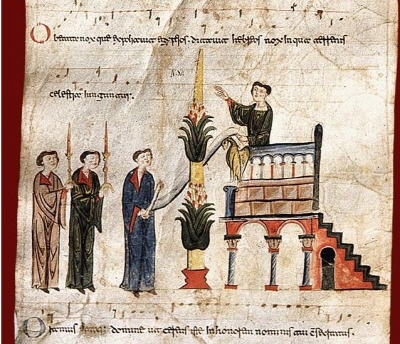 O beata nox que expoliavit egyptios. ditavit hebreos nox in qua terrenis
celestia iunguntur.
Oramus domine ut cereus iste in honorem nominis tui